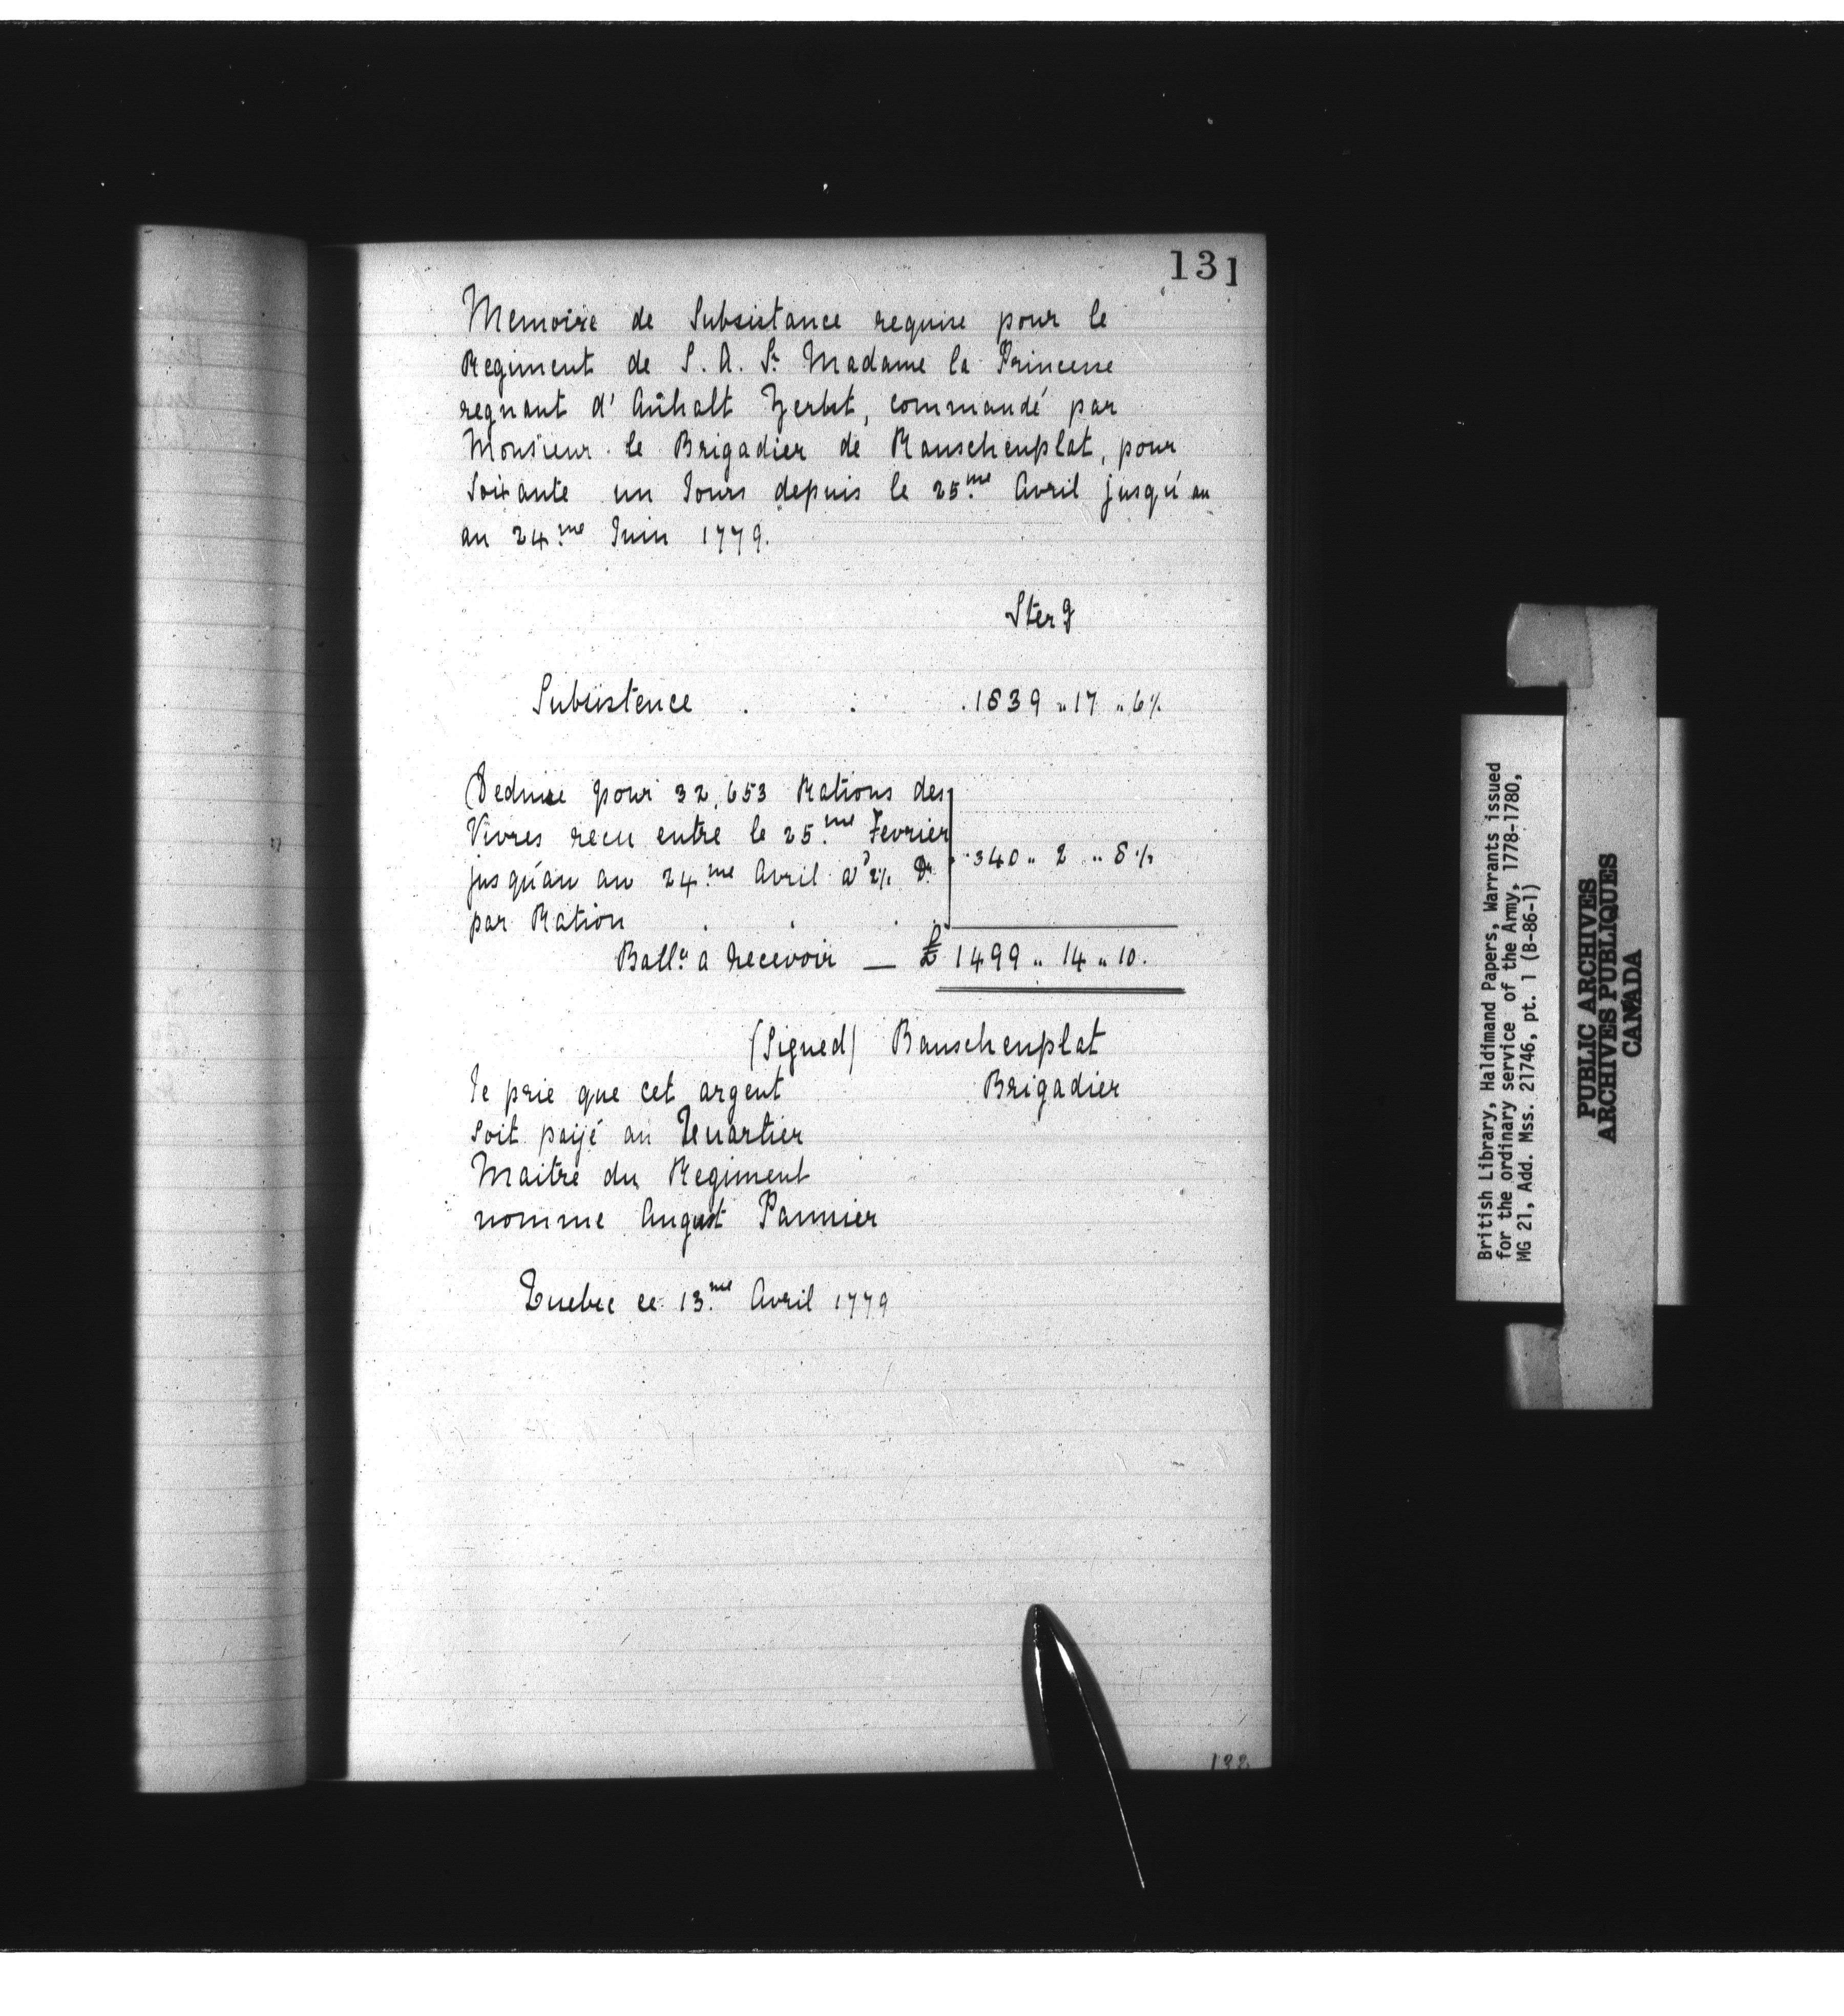 131
Memoire de Subsistance requise pour le
Regiment de S. A. Sr. Madame la Princesse
regnant d' Anhalt Zerbst, commandé par
Monsieur le Brigadier de Rauschenplat, pour
Soixante un Jours depuis le 25.me Avril jusqu'au
au 24.me Juin 1779.
Sterg
Subsistence . . . 1839 " 17 " 6½
Deduise pour 32,653 Rations des
Vivres recu entre le 25.me Fevrier
jusqu'au au 24.me Avril a 2½ Dr.
340 " 2 " 8½
par Ration . . .
Ballce a recevoir — £ 1499 " 14 " 10.
(Signed) Rauschenplat
Brigadier
Je prie que cet argent
soit paijé au Quartier
Maitre du Regiment
nomme August Pannier
Quebec ce 13.me Avril 1779
132
British Library, Haldimand Papers, Warrants issued
for the ordinary service of the Army, 1778-1780,
MG 21, Add. Mss. 21746, pt. 1 (B-86-1)
PUBLIC ARCHIVES
ARCHIVES PUBLIQUES
CANADA